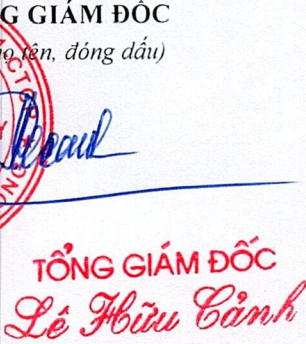 G GIÁM ĐỐC
tên, đóng dấu)
TỔNG GIÁM ĐỐC
Lê Hữu Cảnh